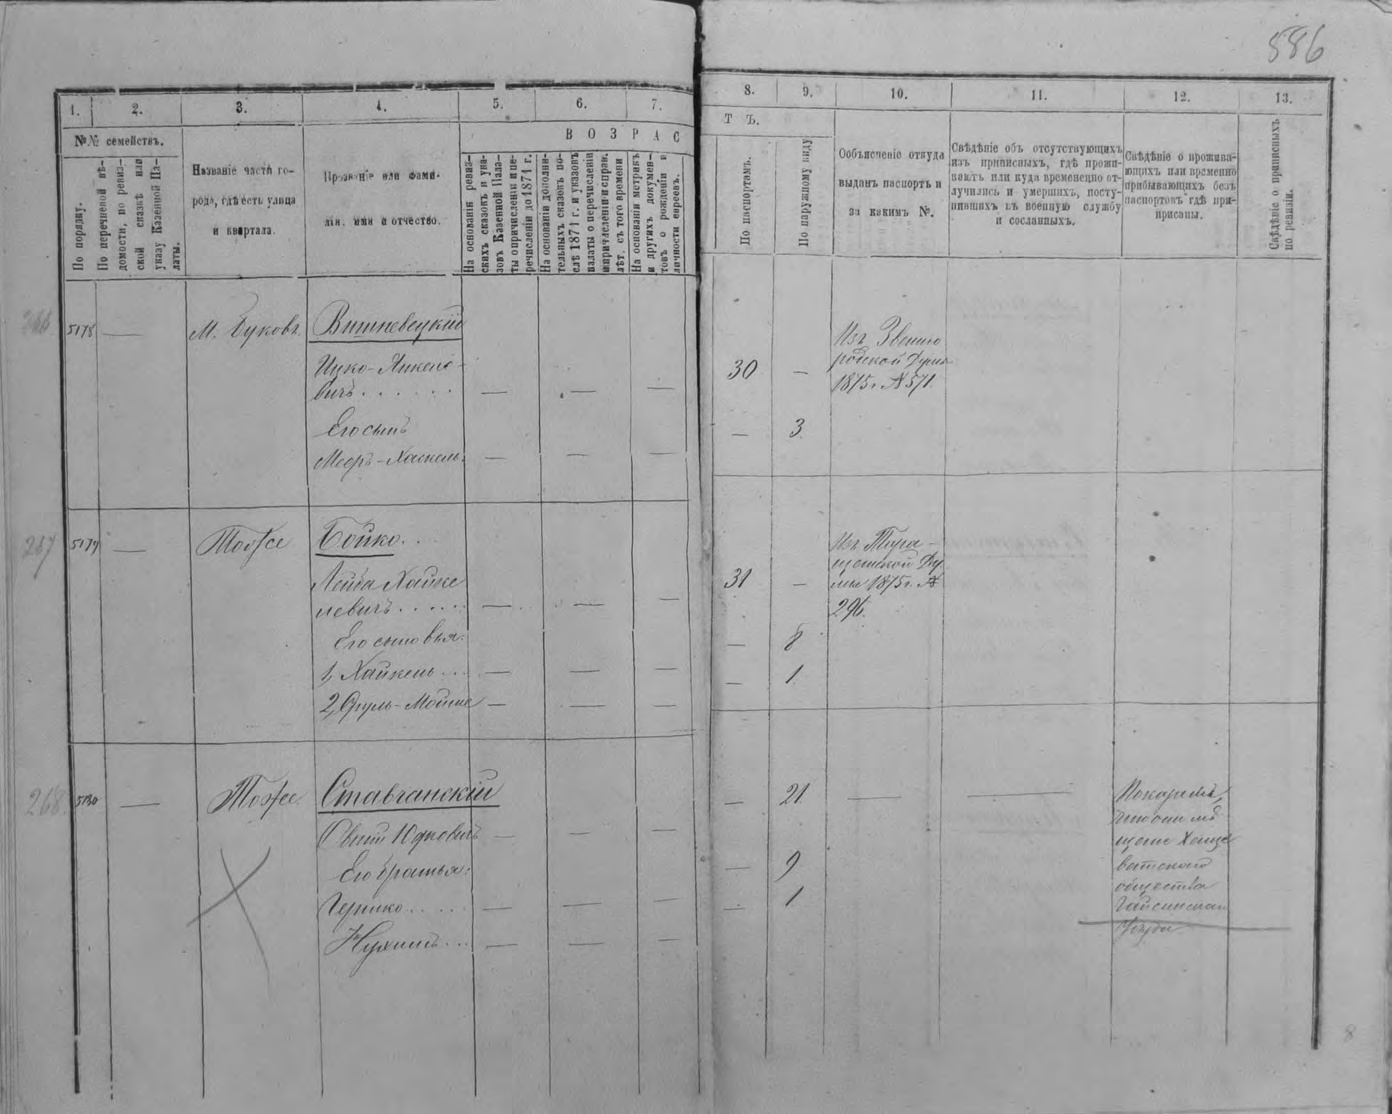 586
1. 2. 3. 4. 5. 6. 7. 8. 9. 10. 11. 12. 13.
№№ семействъ.
В О З Р А С Т Ъ.
По порядку.
По перечневой вѣ-
домости, по ревиз-
ской сказкѣ или
указу Казенной Па-
латы.
Названіе части го-
рода, гдѣ есть улица
и квартала.
Прозваніе или фами-
лія, имя и отчество.
На основаніи ревиз-
скихъ сказокъ и ука-
зовъ Казенной Пала-
ты о причисленіи и пе-
речисленіи до 1871 г.
На основаніи дополни-
тельныхъ сказокъ по-
слѣ 1871 г. и указовъ
палаты о перечисленіи
и причисленіи и справ.
лѣт. съ того времени
На основаніи метрикъ
и другихъ докумен-
товъ о рожденіи и
личности евреевъ.
По паспортамъ.
По наружному виду
Объясненіе откуда
выданъ паспортъ и
за какимъ №.
Свѣдѣніе объ отсутствующихъ
изъ приписныхъ, гдѣ прожи-
ваютъ или куда временно от-
лучились и умершихъ, посту-
пившихъ къ военную службу
и сосланныхъ.
Свѣдѣніе о прожива-
ющихъ или временно
прибывающихъ безъ
паспортовъ гдѣ при-
приписаны.
Свѣдѣніе о приписныхъ
по ревизіи.
266 5178 — М. Буковъ Вишневецкій
Ицко-Янкело-
вичъ . . . . . . — — — 30 —
Изъ Звениго
родской Думы
1875 г. № 571
Его сынъ
Мееръ-Хаскель. — — — — 3
267 5179 — Тоже Бойко . .
Лейба Хайке
левичъ . . . . . . — — — 31 —
Изъ Тара-
щанской Ду
мы 1875 г. №
296.
Его сыновья:
1, Хайкель . . . — — — — 8
2, Сруль-Мойше — — — — 1
268 5180 — Тоже. Ставчанскій — 21 — —
Юдковичъ — — —
Его братья: — 9
Гершко . . . . . — — — — 1
Нухимъ . . . — — —
мѣ
щане Хаще
ватскаго
общества
Гайсинскаго
уѣзда
8